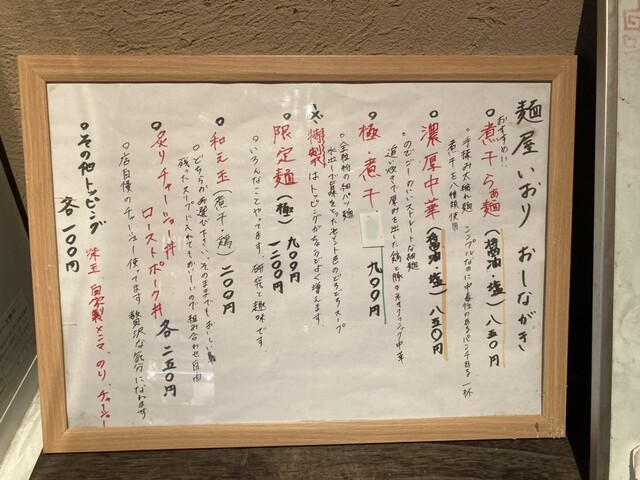 麺屋 いおり おしながき
おすすめ!!
○煮干らぁ麺(醤油・塩)八五〇円
・手揉み太縮れ麺 シンプルなのに中毒性のあるパンチある一杯
煮干を八種類使用
○濃厚中華(醤油・塩)八五〇円
・のどごしのいいストレートな細麺
追い炊きで厚みを出した鶏と豚のネオクラシック中華
○極・煮干 九〇〇円
・全粒粉の細パツ麺
水出しで旨味をとったセメント色のどろどろスープ
特製はトッピングがなかなかよく増えます。
○限定麺(極)九〇〇円
一二〇〇円
・いろんなことやってます。研究と趣味です。
○和え玉(煮干・鶏)二〇〇円
・どちらかお選び下さい。そのままでもおいしいし
残ったスープに入れてもおいしいので組み合わせ自由
○炙りチャーシュー丼
ローストポーク丼 各二五〇円
・店自慢のチャーシュー使ってます 贅沢な気分になれます
○その他トッピング 味玉、自家製メンマ、のり、チャーシュー
各一〇〇円